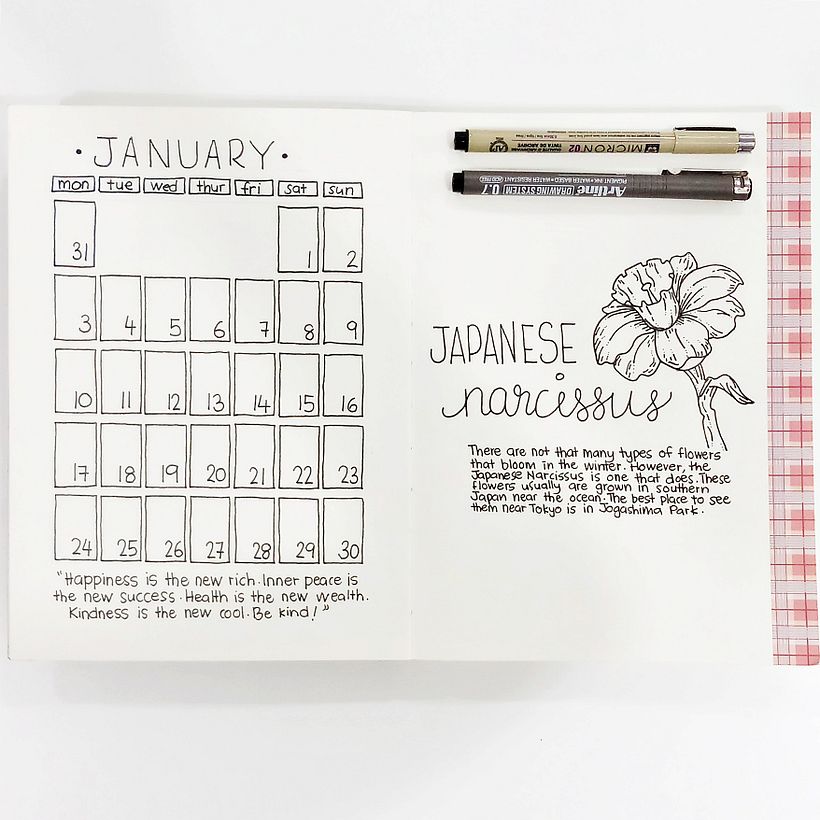 · JANUARY ·
mon tue wed thur fri sat sun
31 1 2
3 4 5 6 7 8 9
10 11 12 13 14 15 16
17 18 19 20 21 22 23
24 25 26 27 28 29 30
"Happiness is the new rich. Inner peace is
the new success. Health is the new wealth.
Kindness is the new cool. Be kind!"
MICRON 02
Artline DRAWING SYSTEM 0.7
PIGMENT INK • WATER BASED • WATER RESISTANT
JAPANESE
narcissus
There are not that many types of flowers
that bloom in the winter. However, the
Japanese Narcissus is one that does. These
flowers usually are grown in southern
Japan near the ocean. The best place to see
them near Tokyo is in Jogashima Park.